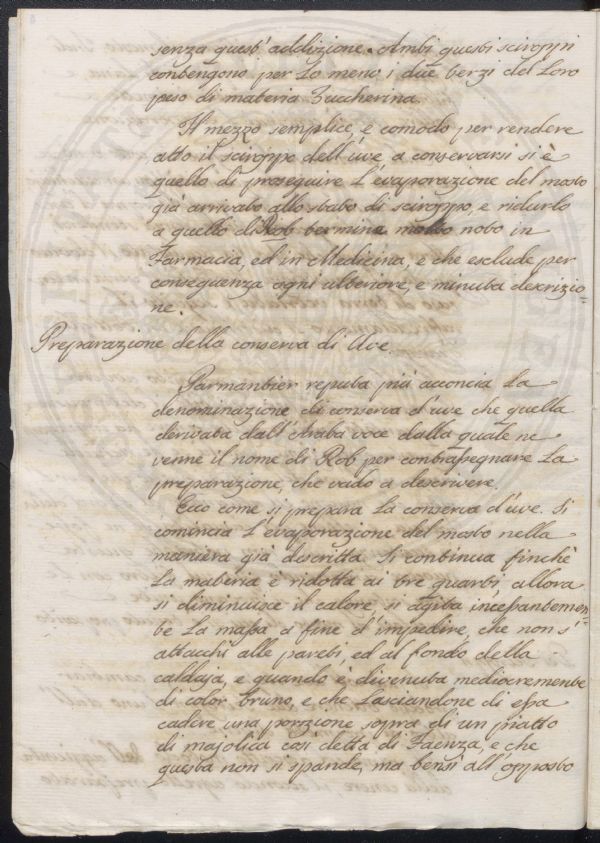 senza quest' addizione. Ambi questi sciroppi
contengono per lo meno i due terzi del Loro
peso di materia Zuccherina.
Il mezzo semplice, e comodo per rendere
atto il sciroppo dell'uve a conservarsi si è
quello di proseguire L'evaporazione del mosto
già arrivato allo stato di sciroppo, e ridurlo
a quello di Rob termine molto noto in
Farmacia, ed in Medicina, e che esclude per
conseguenza ogni ulteriore, e minuta descrizio=
ne.
Preparazione della conserva di Uve.
Parmantier reputa più acconcia La
denominazione di conserva d'uve che quella
derivata dall'Araba voce dalla quale ne
venne il nome di Rob per contrassegnare La
preparazione, che vado a descrivere.
Ecco come si prepara La conserva d'uve. Si
comincia L'evaporazione del mosto nella
maniera già descritta. Si continua finchè
La materia è ridotta ai tre quarti, allora
si diminuisce il calore, si agita incessantemen=
te La massa a fine d'impedire, che non s'
attacchi alle pareti, ed al fondo della
caldaja, e quando è divenuta mediocremente
di color bruno, e che Lasciandone di essa
cadere una porzione sopra di un piatto
di majolica così detta di Faenza, e che
questa non si spande, ma bensì all'opposto